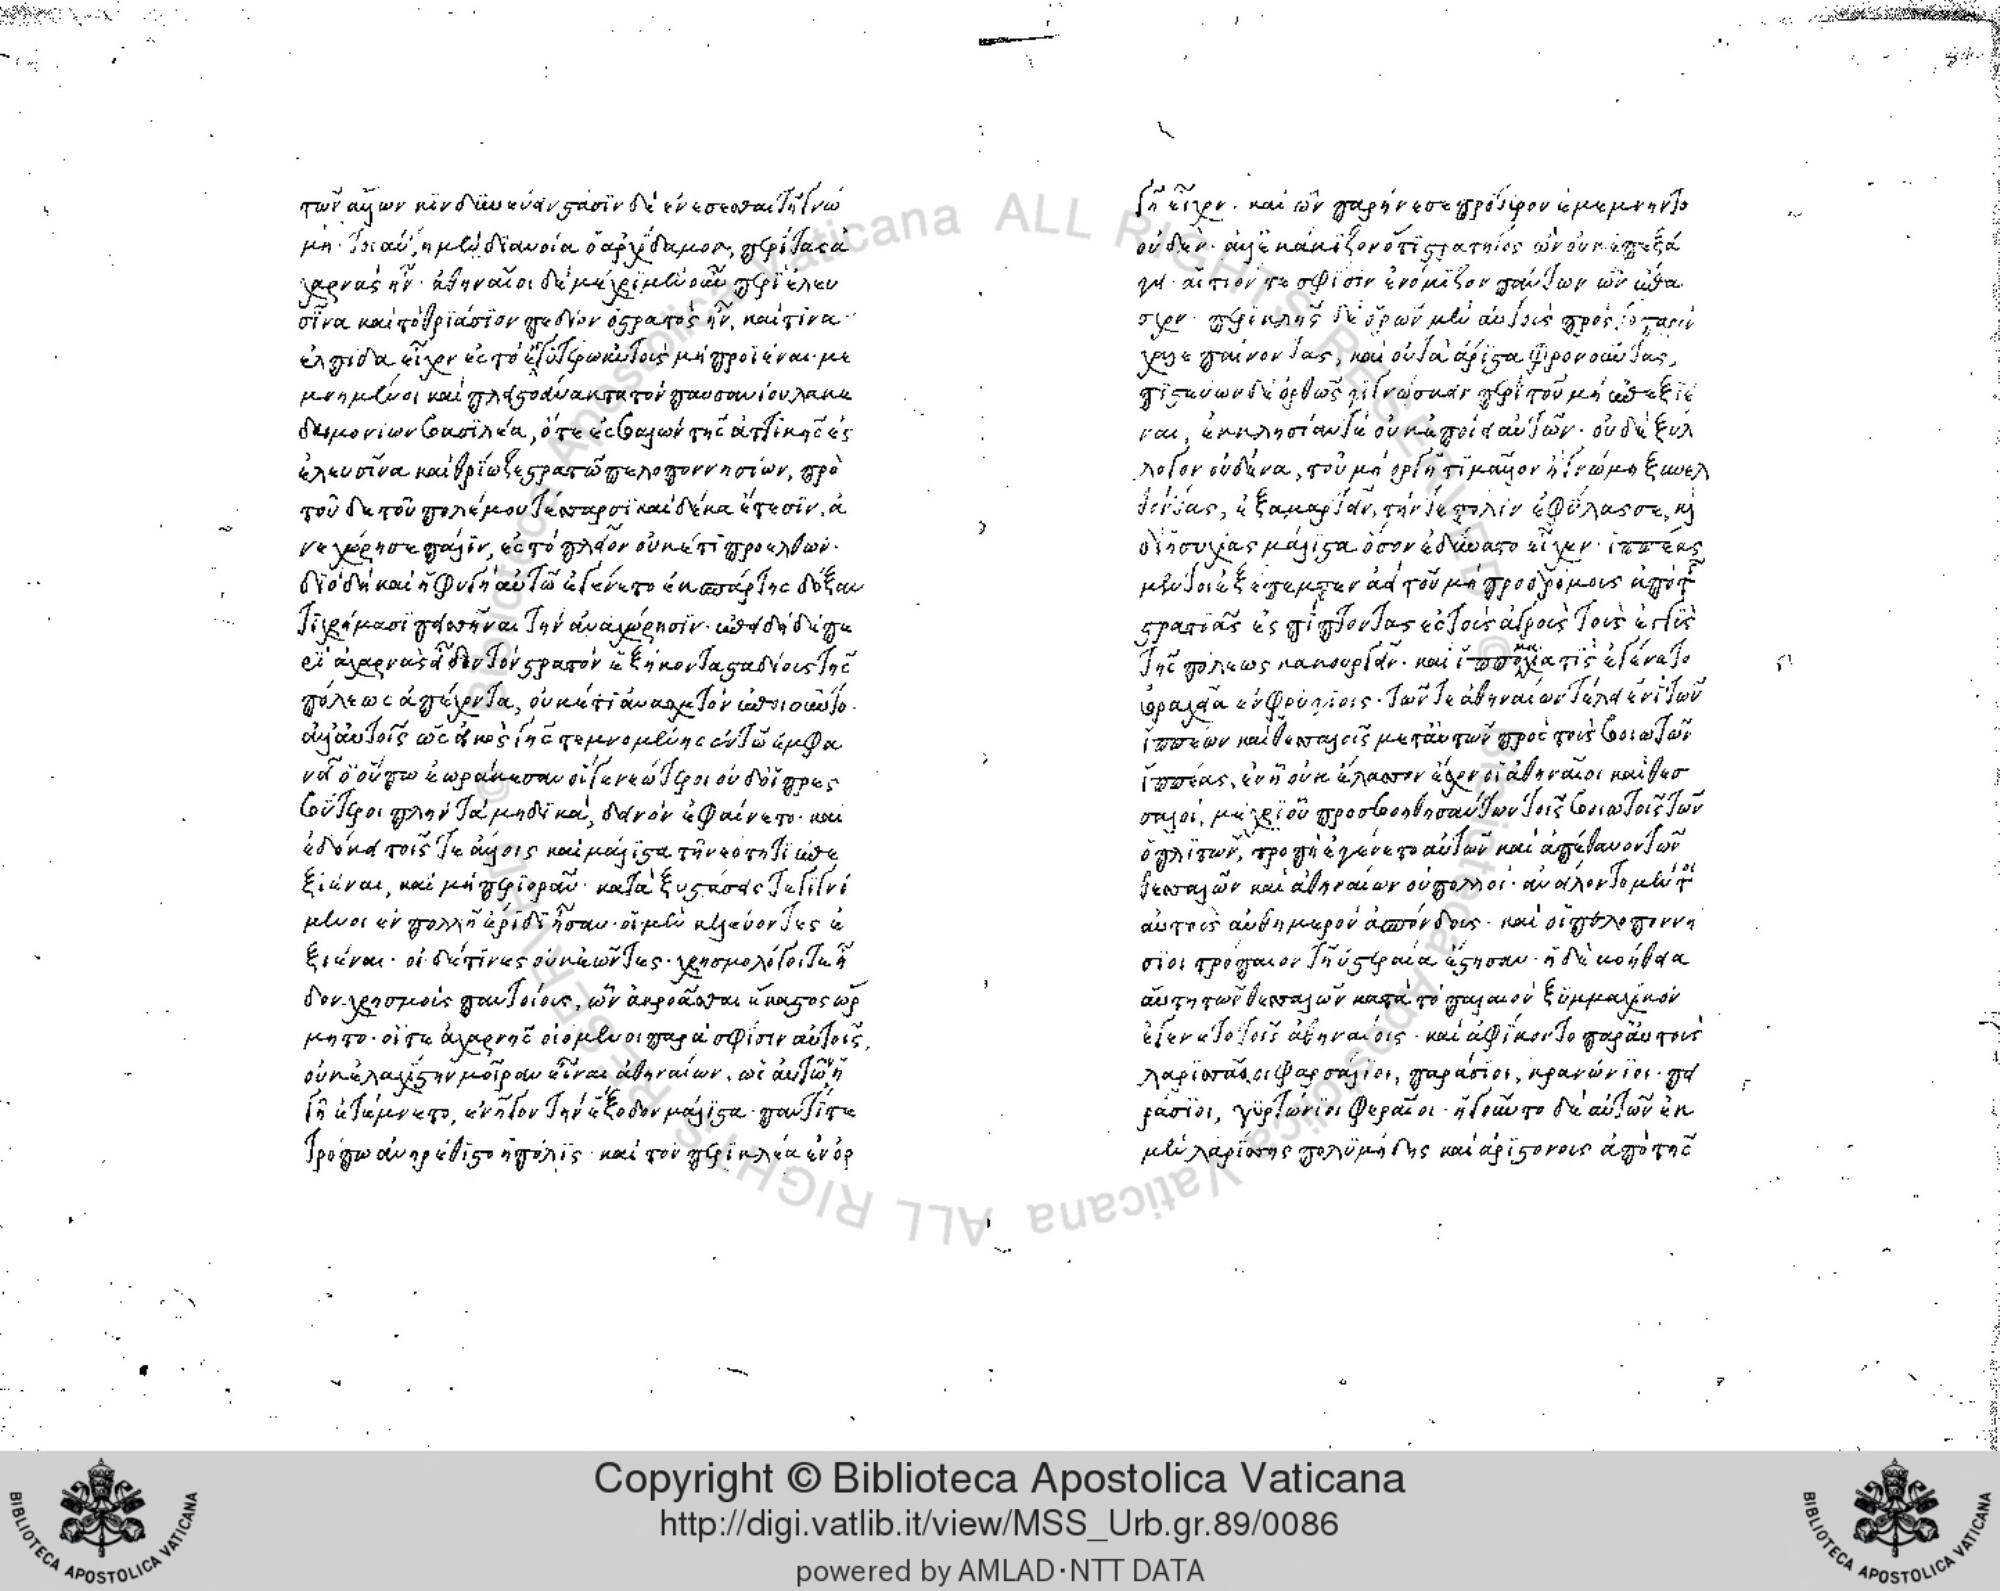 τῶν ἄλλων κινδυνεύειν στάσιν δὲ ἐνέσεσθαι τῆ γνώ
μη· τοιαύτη μὲν διανοία ὁ ἀρχίδαμος, περὶ τὰς ἀ
χαρνὰς ἦν· ἀθηναῖοι δὲ μέχρι μὲν οὗ περὶ ἐλευ
σῖνα καὶ τὸ θριάσιον πεδίον ὁ στρατὸς ἦν, καί τινα
ἐλπίδα εἶχον ἐς τὸ ἐγγυτέρω αὐτοὺς μὴ προϊέναι· με
μνημένοι καὶ πλειστοάνακτα τὸν παυσανίου λακε
δαιμονίων βασιλέα, ὅτε ἐσβαλὼν τῆς ἀττικῆς ἐς
ἐλευσῖνα καὶ θρίωζε στρατῶ πελοποννησίων, πρὸ
τοῦδε τοῦ πολέμου τέσσαρσι καὶ δέκα ἔτεσιν, ἀ
νεχώρησε πάλιν, ἐς τὸ πλεῖον οὐκέτι προελθών·
διὸ δὴ καὶ ἡ φυγὴ αὐτῶ ἐγένετο ἐκ σπάρτης δόξαν
τι χρήμασι πεισθῆναι τὴν ἀναχώρησιν· ἐπειδὴ δὲ πε
ρὶ ἀχαρνὰς εἶδον τὸν στρατὸν ἑξήκοντα σταδίους τῆς
πόλεως ἀπέχοντα, οὐκέτι ἀνασχετὸν ἐποιοῦντο·
ἀλλ' αὐτοῖς ὡς εἰκὸς γῆς τεμνομένης ἐν τῶ ἐμφα
νεῖ ὃ οὔπω ἑωράκεσαν οἵ γε νεώτεροι οὐδ' οἱ πρεσ
βύτεροι πλὴν τὰ μηδικὰ, δεινὸν ἐφαίνετο· καὶ
ἐδόκει τοῖς τε ἄλλοις καὶ μάλιστα τῆ νεότητι ἐπε
ξιέναι, καὶ μὴ περιορᾶν· κατὰ ξυστάσεις τε γιγνό
μενοι ἐν πολλῆ ἔριδι ἦσαν· οἱ μὲν κελεύοντες ἐ
ξιέναι· οἱ δέ τινες οὐκ ἐῶντες· χρησμολόγοι τε ἦ
δον χρησμοὺς παντοίους, ὧν ἀκροᾶσθαι ἕκαστος ὥρ
μητο· οἵ τε ἀχαρνῆς οἰόμενοι παρὰ σφίσιν αὐτοῖς,
οὐκ ἐλαχίστην μοῖραν εἶναι ἀθηναίων, ὡς αὐτῶν ἡ
γῆ ἐτέμνετο, ἐνῆγον τὴν ἔξοδον μάλιστα· παντί τε
τρόπω ἀνηρέθιστο ἡ πόλις· καὶ τὸν περικλέα ἐν ὀρ
γῆ εἶχον· καὶ ὧν παρήνεσε πρότερον ἐμέμνηντο
οὐδέν· ἀλλ' ἐκάκιζον ὅτι στρατηγὸς ὢν οὐκ ἐπεξά
γοι· αἴτιόν τε σφίσιν ἐνόμιζον πάντων ὧν ἔπα
σχον· περικλῆς δὲ ὁρῶν μὲν αὐτοὺς πρὸς τὸ παρὸν
χαλεπαίνοντας, καὶ οὐ τὰ ἄριστα φρονοῦντας,
πιστεύων δὲ ὀρθῶς γιγνώσκειν περὶ τοῦ μὴ ἐπεξιέ
ναι, ἐκκλησίαν τε οὐκ ἐποίει αὐτῶν· οὐδὲ ξύλ
λογον οὐδένα, τοῦ μὴ ὀργῆ τι μᾶλλον ἢ γνώμη ξυνελ
θόντας, ἐξαμαρτεῖν, τήν τε πόλιν ἐφύλασσε, κ
δι' ἡσυχίας μάλιστα ὅσον ἐδύνατο εἶχεν· ἱππέας
μέντοι ἐξέπεμπεν ἀεὶ τοῦ μὴ προδρόμους ἀπὸ τῆς
στρατιᾶς ἐσπίπτοντας ἐς τοὺς ἀγροὺς τοὺς ἐγγὺς
τῆς πόλεως κακουργεῖν· καὶ ἱππομαχία τις ἐγένετο
βραχεῖα ἐν φρυγίοις· τῶν τε ἀθηναίων τέλει ἑνὶ τῶν
ἱππέων καὶ θεσσαλοῖς μετ' αὐτῶν πρὸς τοὺς βοιωτῶν
ἱππέας, ἐν ἧ οὐκ ἔλασσον ἔσχον οἱ ἀθηναῖοι καὶ θεσ
σαλοί, μέχρι οὗ προσβοηθησάντων τοῖς βοιωτοῖς τῶν
ὁπλιτῶν, τροπὴ ἐγένετο αὐτῶν καὶ ἀπέθανον τῶν
θεσσαλῶν καὶ ἀθηναίων οὐ πολλοί· ἀνείλοντο μέντοι
αὐτοὺς αὐθημερὸν ἀσπόνδους· καὶ οἱ πελοποννή
σιοι τροπαῖον τῆ ὑστεραία ἔστησαν· ἡ δὲ βοήθεια
αὕτη τῶν θεσσαλῶν κατὰ τὸ παλαιὸν ξυμμαχικὸν
ἐγένετο τοῖς ἀθηναίοις· καὶ ἀφίκοντο παρ' αὐτοὺς
λαρισσαῖοι φαρσάλιοι, παράσιοι, κρανώνιοι· πει
ράσιοι, γυρτώνιοι φεραῖοι· ἡγοῦντο δὲ αὐτῶν ἐκ
μὲν λαρίσσης πολυμήδης καὶ ἀριστόνους ἀπὸ τῆς
Copyright © Biblioteca Apostolica Vaticana
http://digi.vatlib.it/view/MSS_Urb.gr.89/0086
powered by AMLAD·NTT DATA